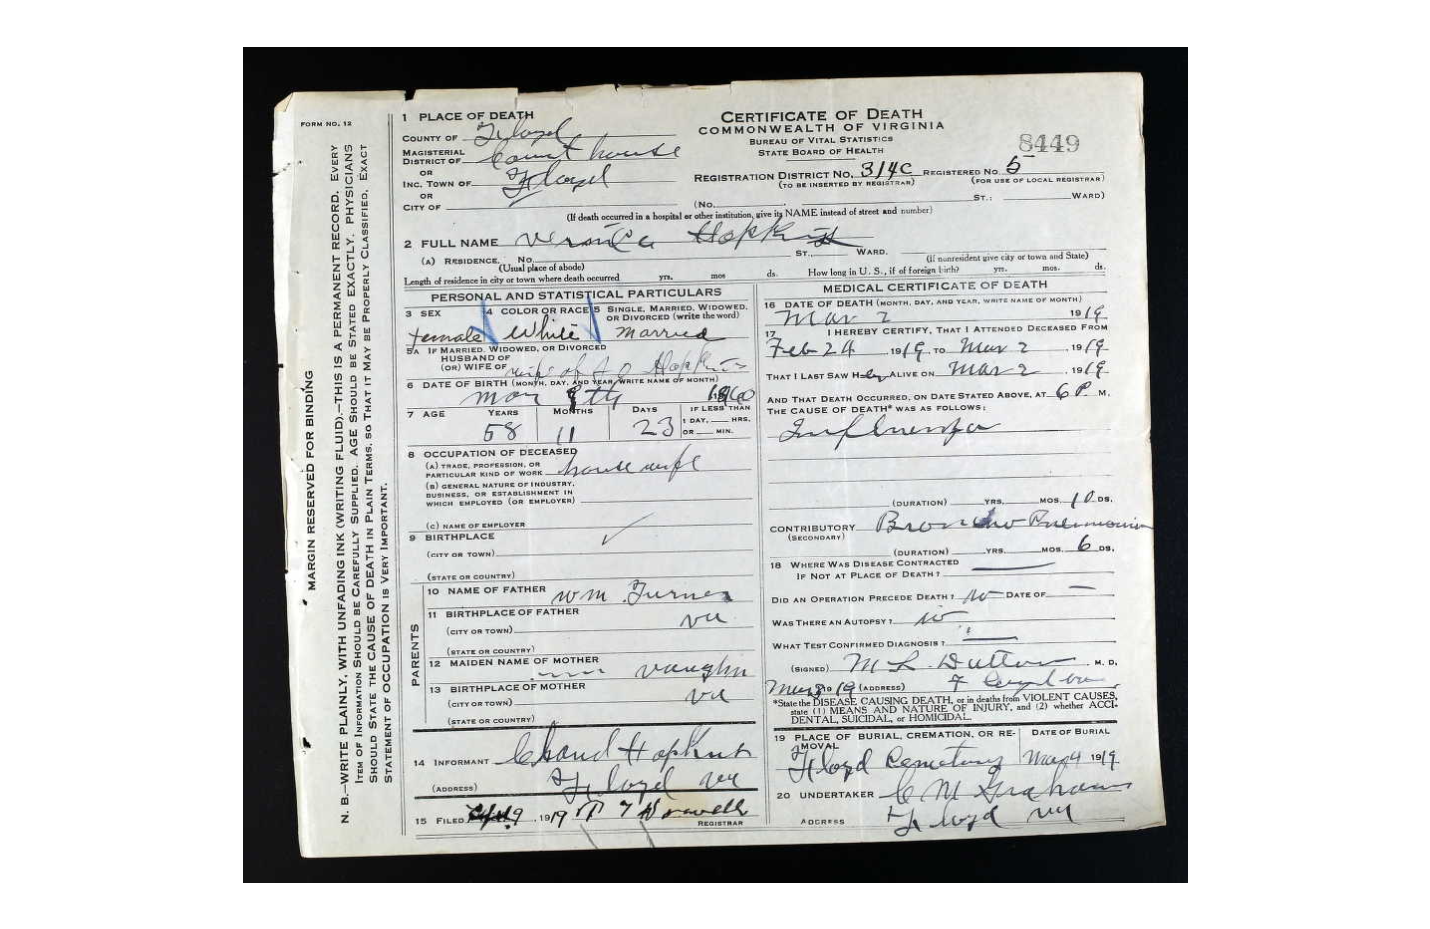 FORM NO. 12
MARGIN RESERVED FOR BINDING
N. B.—WRITE PLAINLY, WITH UNFADING INK (WRITING FLUID).—THIS IS A PERMANENT RECORD. EVERY
ITEM OF INFORMATION SHOULD BE CAREFULLY SUPPLIED. AGE SHOULD BE STATED EXACTLY. PHYSICIANS
SHOULD STATE THE CAUSE OF DEATH IN PLAIN TERMS, SO THAT IT MAY BE PROPERLY CLASSIFIED. EXACT
STATEMENT OF OCCUPATION IS VERY IMPORTANT.
CERTIFICATE OF DEATH
COMMONWEALTH OF VIRGINIA
BUREAU OF VITAL STATISTICS
STATE BOARD OF HEALTH
8449
1 PLACE OF DEATH
COUNTY OF Floyd
MAGISTERIAL DISTRICT OF Court house
OR
INC. TOWN OF Floyd
OR
CITY OF
REGISTRATION DISTRICT NO. 314C REGISTERED NO. 5
(TO BE INSERTED BY REGISTRAR) (FOR USE OF LOCAL REGISTRAR)
(NO. ST.; WARD)
(If death occurred in a hospital or other institution, give its NAME instead of street and number)
2 FULL NAME Veronica Hopkins
(A) RESIDENCE, No. ST., WARD.
(Usual place of abode) (If nonresident give city or town and State)
Length of residence in city or town where death occurred yrs. mos ds. How long in U. S., if of foreign birth? yrs. mos. ds.
PERSONAL AND STATISTICAL PARTICULARS
3 SEX 4 COLOR OR RACE 5 SINGLE, MARRIED, WIDOWED, OR DIVORCED (write the word)
female White Married
5A IF MARRIED, WIDOWED, OR DIVORCED
HUSBAND OF
(OR) WIFE OF wife of Hopkins
6 DATE OF BIRTH (MONTH, DAY, AND YEAR, WRITE NAME OF MONTH)
Mar 9th 1860
7 AGE YEARS MONTHS DAYS IF LESS THAN
1 DAY, HRS.
OR MIN.
58 11 23
8 OCCUPATION OF DECEASED
(A) TRADE, PROFESSION, OR
PARTICULAR KIND OF WORK house wife
(B) GENERAL NATURE OF INDUSTRY,
BUSINESS, OR ESTABLISHMENT IN
WHICH EMPLOYED (OR EMPLOYER)
(C) NAME OF EMPLOYER
9 BIRTHPLACE
(CITY OR TOWN)
(STATE OR COUNTRY)
PARENTS
10 NAME OF FATHER Wm Turner
11 BIRTHPLACE OF FATHER va
(CITY OR TOWN)
(STATE OR COUNTRY)
12 MAIDEN NAME OF MOTHER Vaughn
13 BIRTHPLACE OF MOTHER va
(CITY OR TOWN)
(STATE OR COUNTRY)
14 INFORMANT Hopkins
(ADDRESS) Floyd va
15 FILED 1919
REGISTRAR
MEDICAL CERTIFICATE OF DEATH
16 DATE OF DEATH (MONTH, DAY, AND YEAR, WRITE NAME OF MONTH)
Mar 2 1919
17 I HEREBY CERTIFY, THAT I ATTENDED DECEASED FROM
Feb 24, 1919 TO Mar 2, 1919
THAT I LAST SAW Her ALIVE ON Mar 2, 1919
AND THAT DEATH OCCURRED, ON DATE STATED ABOVE, AT 6 P. M.
THE CAUSE OF DEATH* WAS AS FOLLOWS:
Influenza
(DURATION) YRS. MOS. 10 DS.
CONTRIBUTORY Broncho Pneumonia
(SECONDARY)
(DURATION) YRS. MOS. 6 DS.
18 WHERE WAS DISEASE CONTRACTED
IF NOT AT PLACE OF DEATH?
DID AN OPERATION PRECEDE DEATH? no DATE OF —
WAS THERE AN AUTOPSY? no
WHAT TEST CONFIRMED DIAGNOSIS?
(SIGNED) M L Dutton, M. D.
1919 (ADDRESS) Floyd va
*State the DISEASE CAUSING DEATH, or in deaths from VIOLENT CAUSES,
state (1) MEANS AND NATURE OF INJURY, and (2) whether ACCI-
DENTAL, SUICIDAL, or HOMICIDAL.
19 PLACE OF BURIAL, CREMATION, OR RE-MOVAL DATE OF BURIAL
Floyd Cemetery Mar 4 1919
20 UNDERTAKER C M Graham
ADDRESS Floyd va